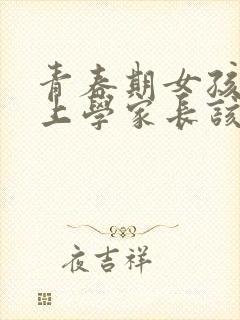 青春期女孩
上學家長該
夜吉祥